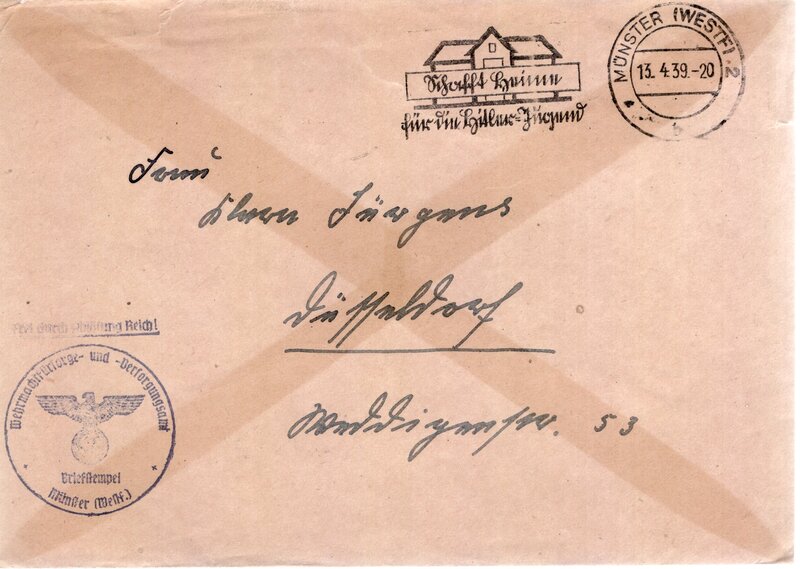 MÜNSTER (WESTF) 2
13.4.39.-20
b
Schafft Heime
für die Hitler-Jugend
Frau
Klara Jürgens
Düsseldorf
Weddigenstr. 53
Frei durch Ablösung Reich!
Wehrmachtfürsorge- und -versorgungsamt
Briefstempel
Münster (Westf.)